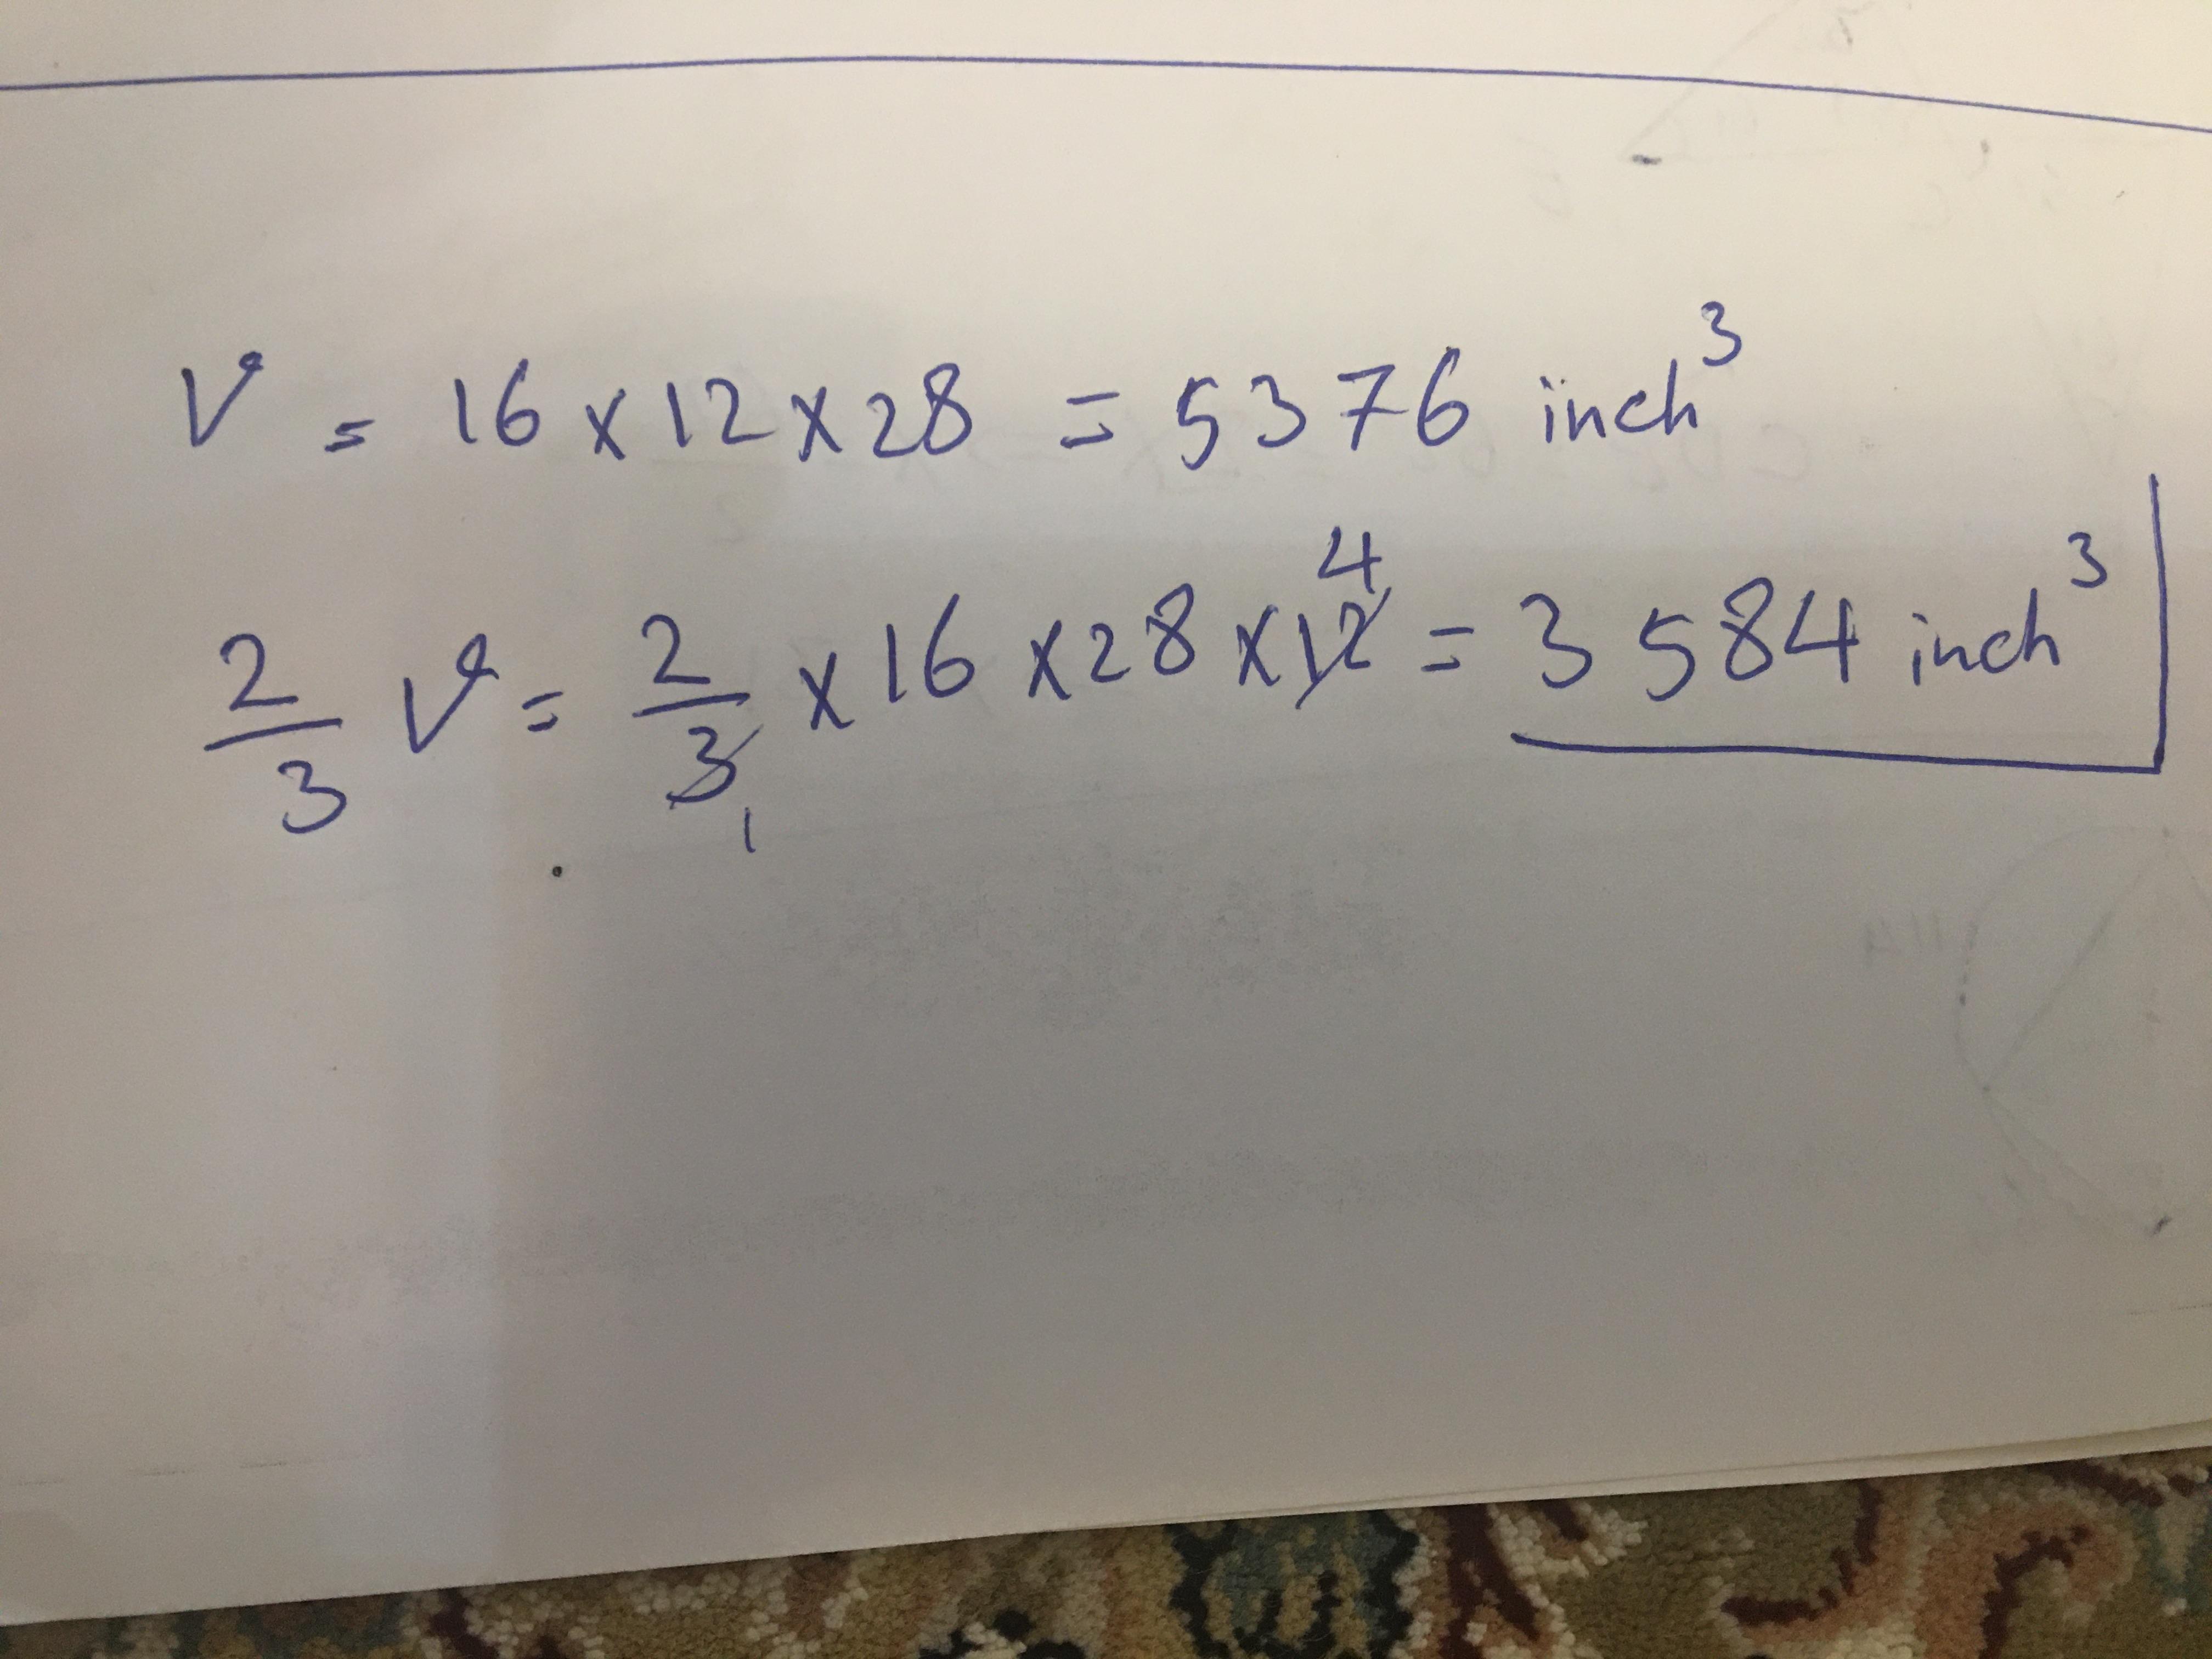 V = 16 x 12 x 28 = 5376 inch³
2/3 V = 2/3 1 x 16 x 28 x 12 4 = 3584 inch³